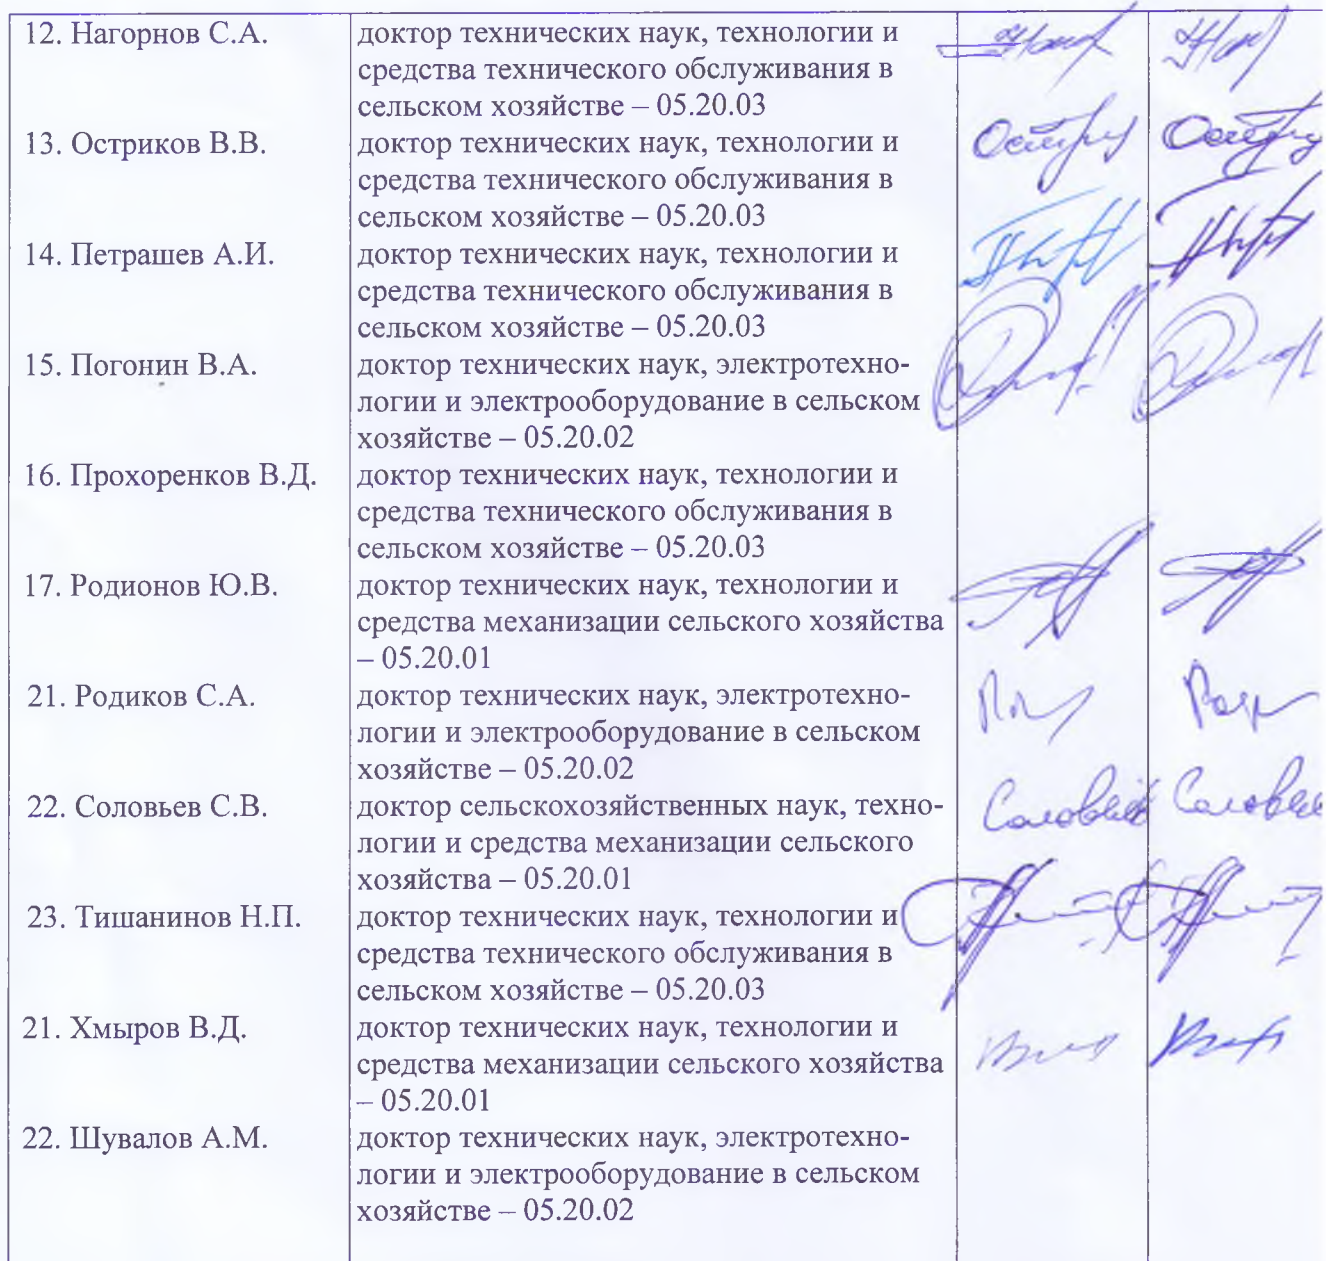 12. Нагорнов С.А.
доктор технических наук, технологии и
средства технического обслуживания в
сельском хозяйстве – 05.20.03
13. Остриков В.В.
доктор технических наук, технологии и
средства технического обслуживания в
сельском хозяйстве – 05.20.03
14. Петрашев А.И.
доктор технических наук, технологии и
средства технического обслуживания в
сельском хозяйстве – 05.20.03
15. Погонин В.А.
доктор технических наук, электротехно-
логии и электрооборудование в сельском
хозяйстве – 05.20.02
16. Прохоренков В.Д.
доктор технических наук, технологии и
средства технического обслуживания в
сельском хозяйстве – 05.20.03
17. Родионов Ю.В.
доктор технических наук, технологии и
средства механизации сельского хозяйства
– 05.20.01
21. Родиков С.А.
доктор технических наук, электротехно-
логии и электрооборудование в сельском
хозяйстве – 05.20.02
22. Соловьев С.В.
доктор сельскохозяйственных наук, техно-
логии и средства механизации сельского
хозяйства – 05.20.01
23. Тишанинов Н.П.
доктор технических наук, технологии и
средства технического обслуживания в
сельском хозяйстве – 05.20.03
21. Хмыров В.Д.
доктор технических наук, технологии и
средства механизации сельского хозяйства
– 05.20.01
22. Шувалов А.М.
доктор технических наук, электротехно-
логии и электрооборудование в сельском
хозяйстве – 05.20.02